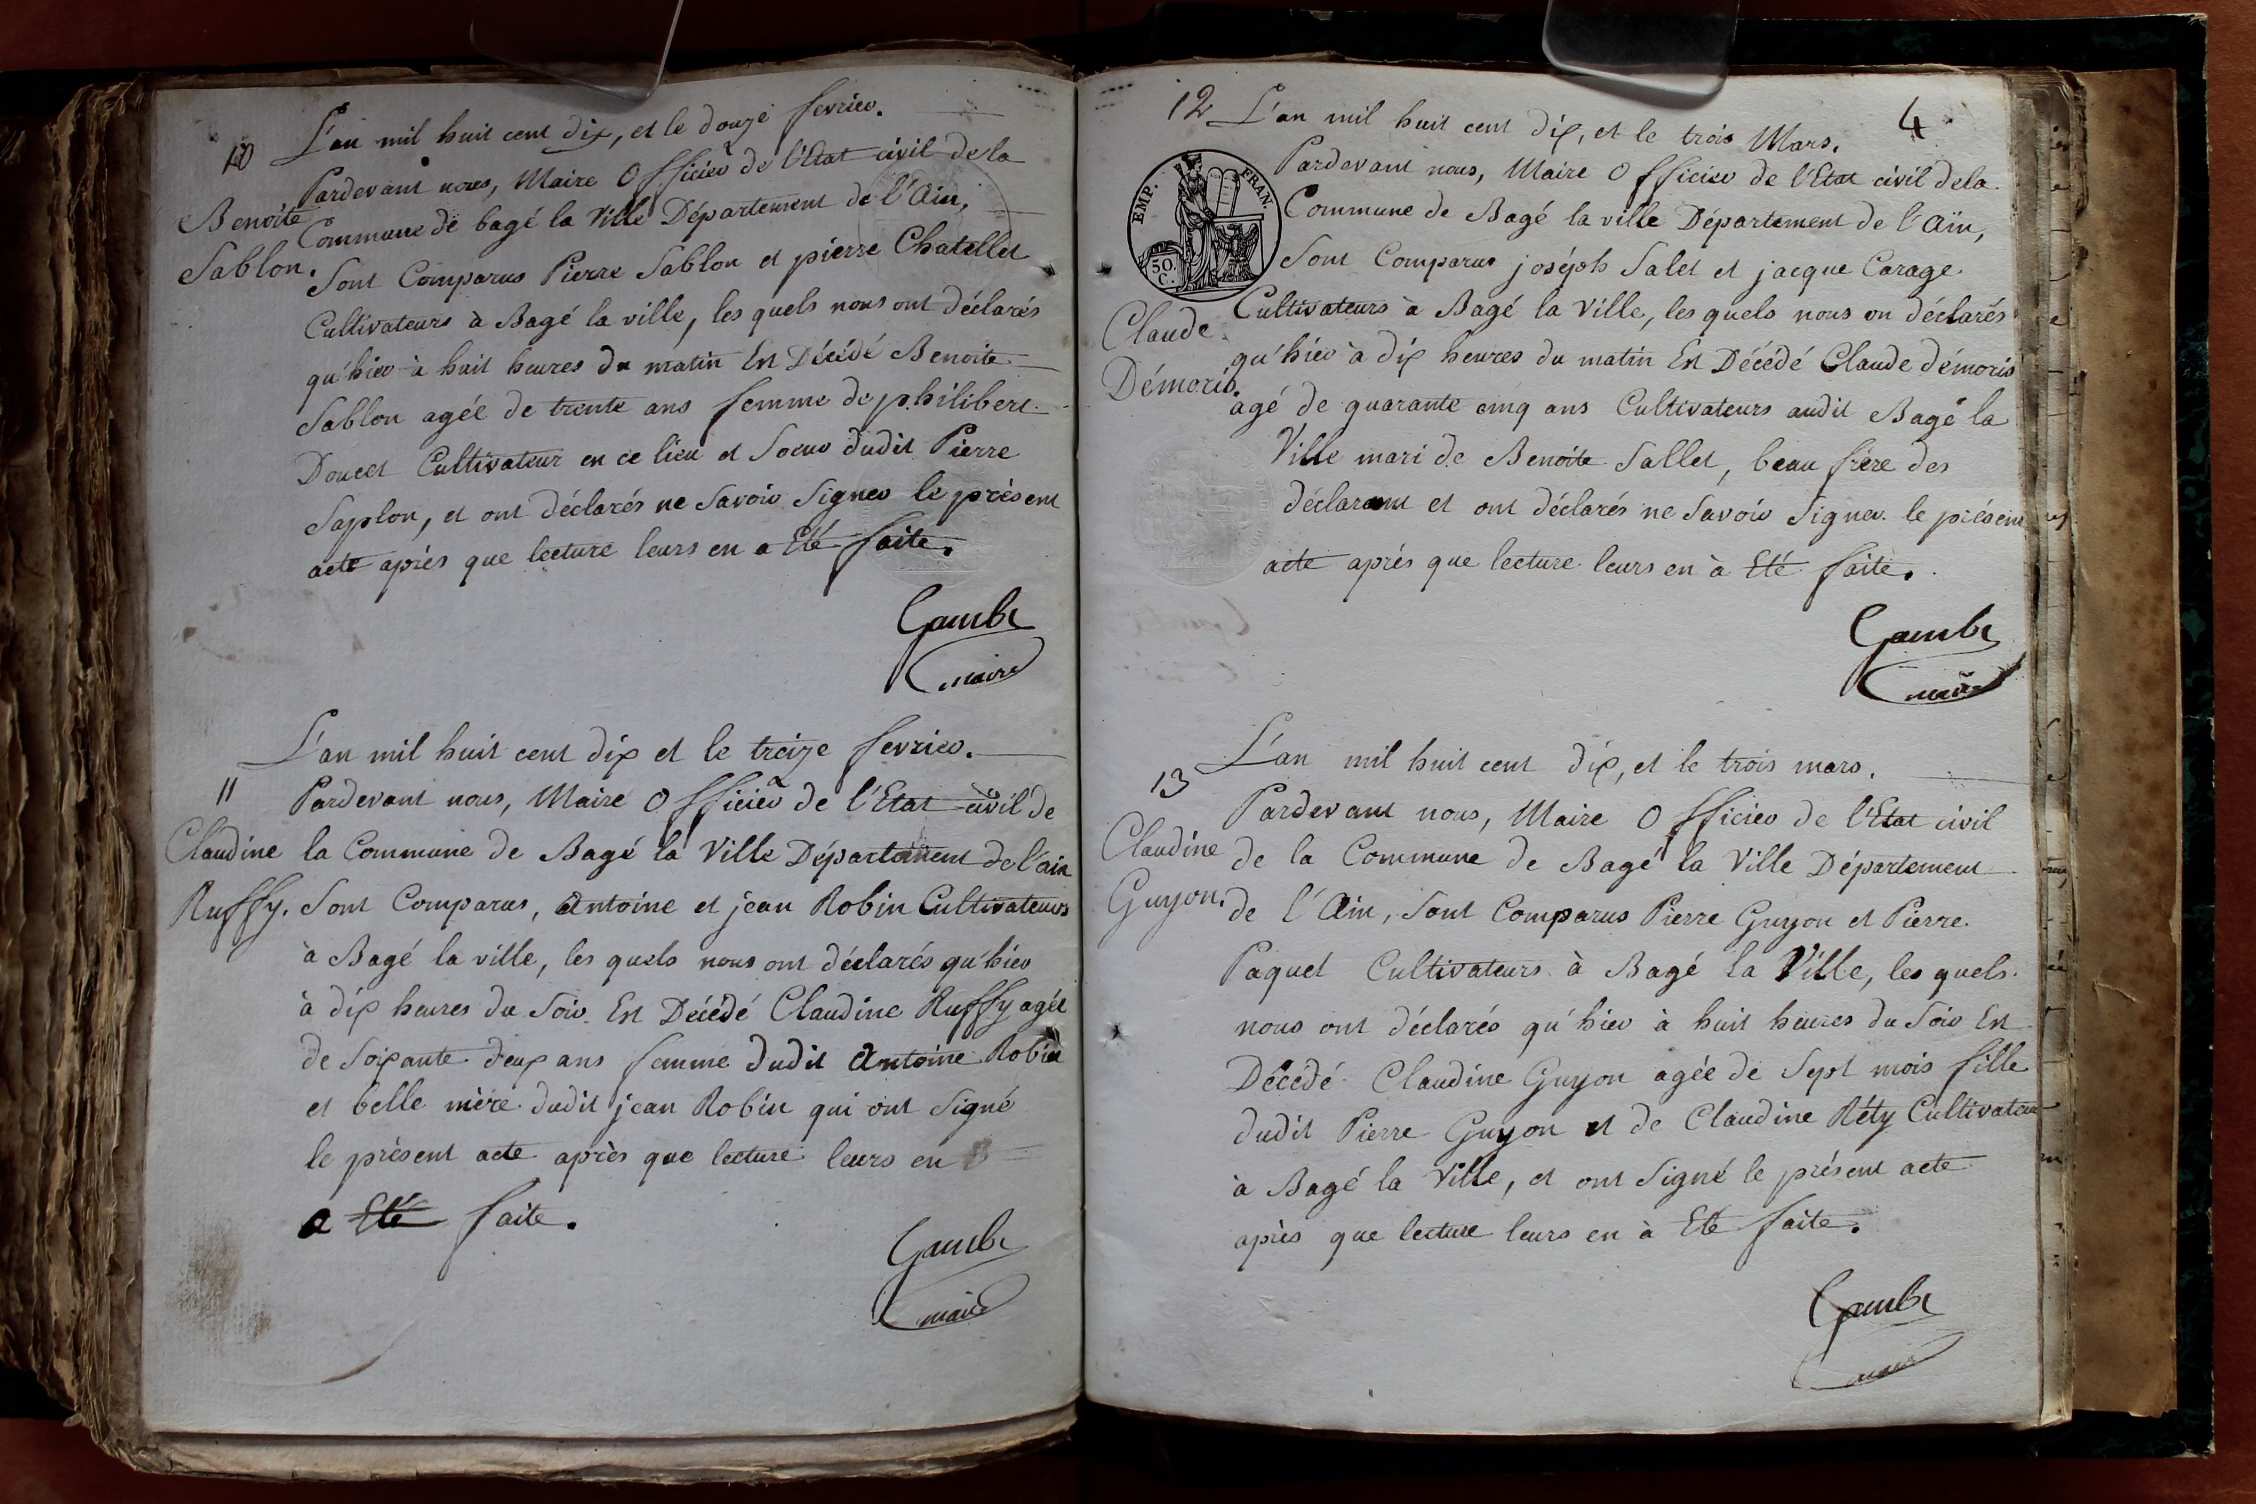 10
L'an mil huit cent dix, et le douze fevrier.
Pardevant nous, Maire Officier de l'Etat civil de la
Benoite
Commune de bagé la Ville Département de l'Ain,
Sablon.
Sont Comparus Pierre Sablon et pierre Chatellet
Cultivateurs à Bagé la ville, les quels nous ont déclarés
qu'hier à huit heures du matin Est Décédé Benoite
Sablon agée de trente ans femme de philibert
Doucet Cultivateur en ce lieu et Soeur dudit Pierre
Saplon, et ont déclarés ne Savoir Signer le présent
acte après que lecture leurs en a Eté faite.
Gambe
maire
L'an mil huit cent dix et le treize fevrier.
11
Pardevant nous, Maire Officier de l'Etat civil de
Claudine
la Commune de Bagé la Ville Département de l'ain
Ruffy.
Sont Comparus, Antoine et jean Robin Cultivateurs
à Bagé la ville, les quels nous ont déclarés qu'hier
à dix heures du Soir Est Décédé Claudine Ruffy agée
de Soixante deux ans femme dudit Antoine Robin
et belle mère dudit jean Robin qui ont Signé
le présent acte après que lecture leurs en
a Eté faite.
Gambe
maire
12
L'an mil huit cent dix, et le trois Mars.
4
Pardevant nous, Maire Officier de l'Etat civil dela
EMP. FRAN.
Commune de Bagé la ville Département de l'Aïn,
50. C.
Sont Comparus joséph Salet et jacque Carage
Cultivateurs à Bagé la Ville, les quels nous on déclarés
Claude
qu'hier à dix heures du matin Est Décédé Claude démoris
Démoris.
agé de quarante cinq ans Cultivateurs audit Bagé la
Ville mari de Benoite Sallet, beau frère des
déclarant et ont déclarés ne Savoir Signer le présent
acte après que lecture leurs en à Eté faite.
Gambe
maire
L'an mil huit cent dix, et le trois mars.
13
Pardevant nous, Maire Officier de l'Etat civil
Claudine
de la Commune de Bagé la Ville Département
Guyon.
de l'Ain, Sont Comparus Pierre Guyon et Pierre
Paquet Cultivateurs à Bagé la Ville, les quels
nous ont déclarés qu'hier à huit heures du Soir Est
Décédé Claudine Guyon agée de Sept mois fille
dudit Pierre Guyon et de Claudine Réty Cultivateur
à Bagé la Ville, et ont Signé le présent acte
après que lecture leurs en à Eté faite.
Gambe
maire